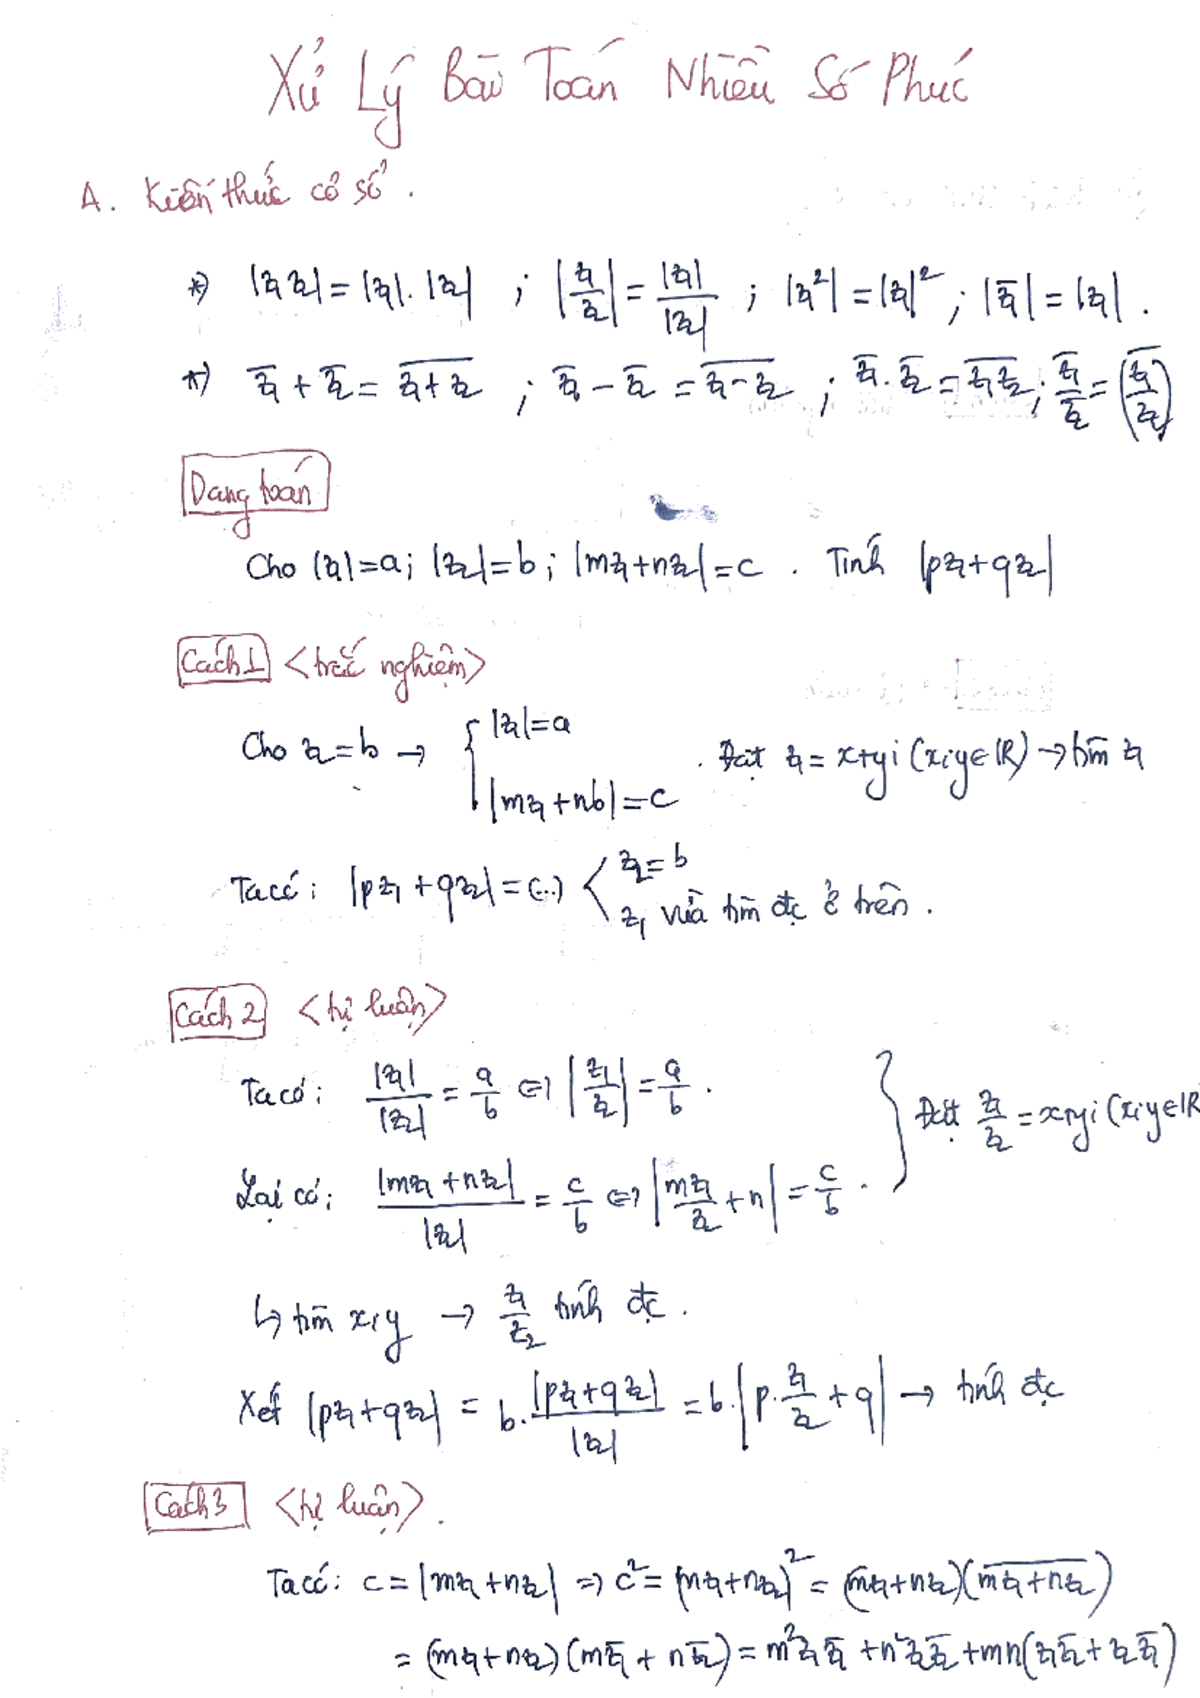 Xử Lý Bài Toán Nhiều Số Phức
A. Kiến thức cơ sở.
*) |z₁z₂| = |z₁|.|z₂| ; |z₁/z₂| = |z₁|/|z₂| ; |z₁²| = |z₁|² ; |z̅₁| = |z₁| .
*) z̅₁ + z̅₂ = \overline{z₁+z₂} ; z̅₁ - z̅₂ = \overline{z₁-z₂} ; z̅₁.z̅₂ = \overline{z₁z₂} ; z̅₁/z̅₂ = \overline{(z₁/z₂)}
Dạng toán
Cho |z₁|=a; |z₂|=b; |mz₁+nz₂|=c . Tính |pz₁+qz₂|
Cách 1 <trắc nghiệm>
Cho z₂=b → { |z₁|=a ; |mz₁+nb|=c . Đặt z₁ = x+yi (x;y∈ℝ) → tìm z₁
Ta có: |pz₁+qz₂| = (...) < z₂=b ; z₁ vừa tìm đc ở trên .
Cách 2 <tự luận>
Ta có: |z₁|/|z₂| = a/b ⇔ |z₁/z₂| = a/b .
Lại có: |mz₁+nz₂|/|z₂| = c/b ⇔ |mz₁/z₂ + n| = c/b . } Đặt z₁/z₂ = x+yi (x;y∈ℝ
↳ tìm x,y → z₁/z₂ tính đc .
Xét |pz₁+qz₂| = b.|pz₁+qz₂|/|z₂| = b.|p.z₁/z₂ + q| → tính đc
Cách 3 <tự luận>.
Ta có: c = |mz₁+nz₂| ⇒ c² = |mz₁+nz₂|² = (mz₁+nz₂)(\overline{mz₁+nz₂})
= (mz₁+nz₂)(mz̅₁+nz̅₂) = m²z₁z̅₁ + n²z₂z̅₂ + mn(z₁z̅₂ + z₂z̅₁)